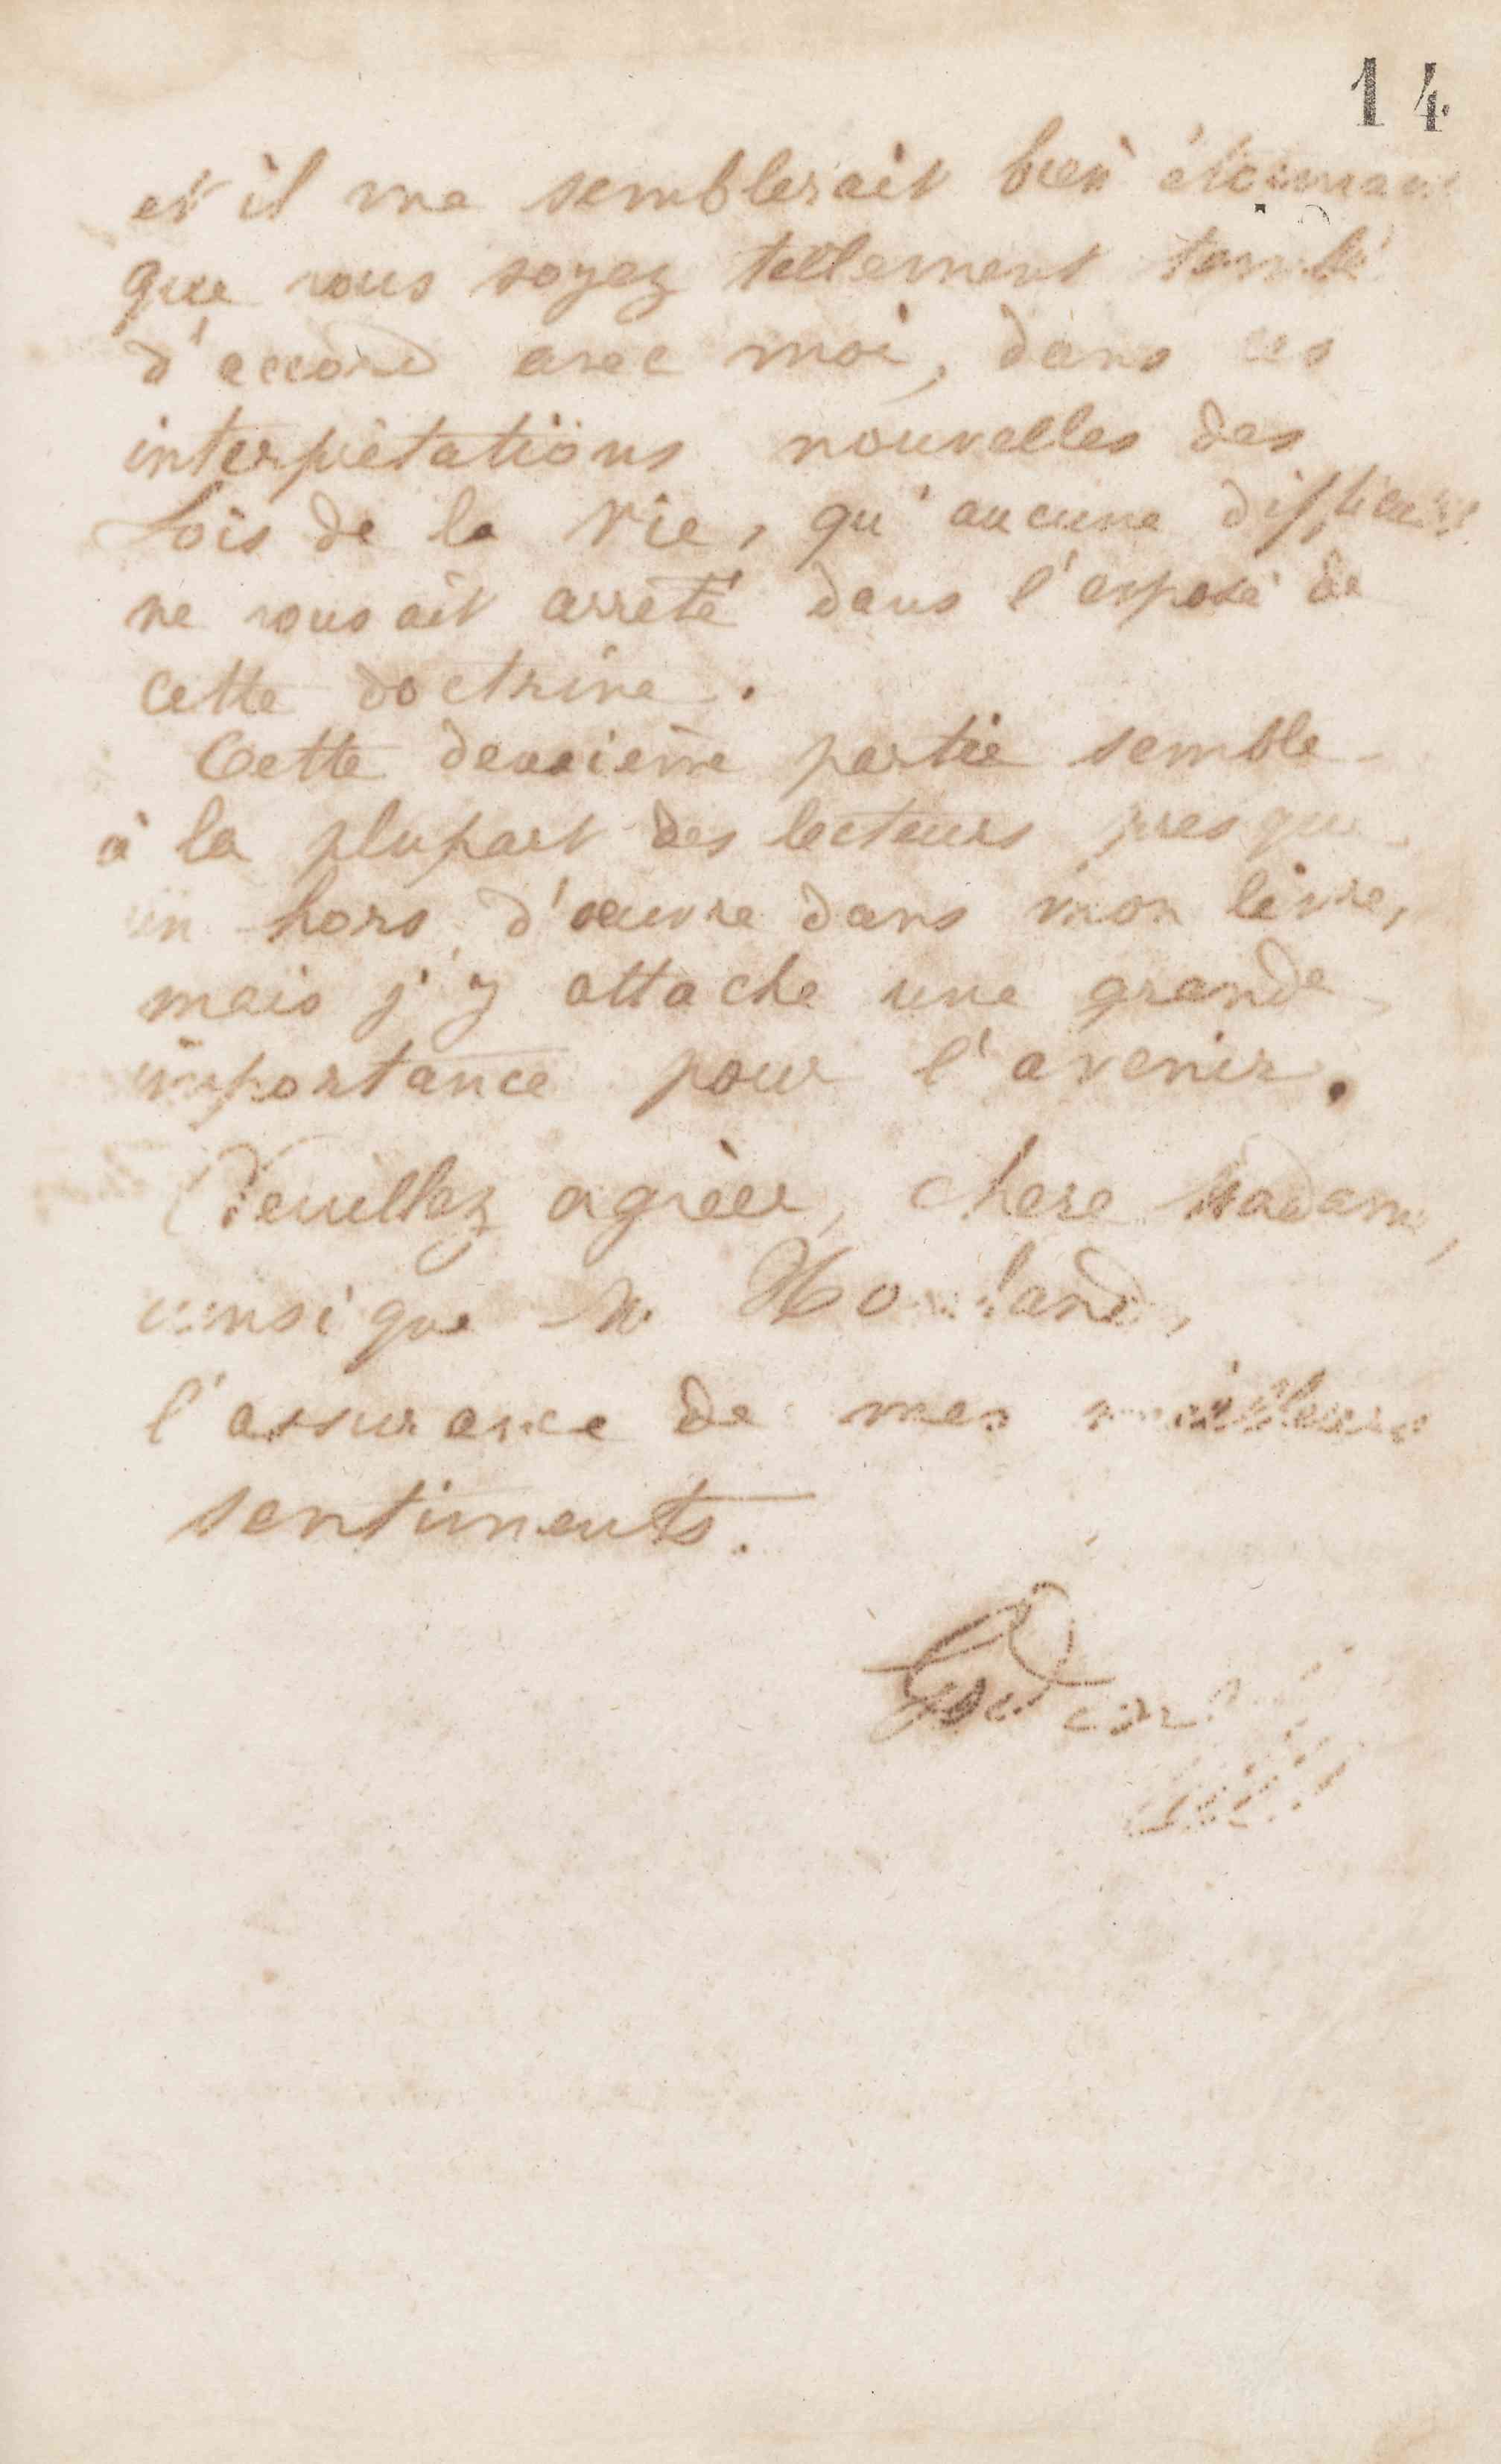 14
et il me semblerait bien étonnant
que vous soyez tellement tombé
d'accord avec moi, dans ces
interprétations nouvelles des
Lois de la Vie, qu'aucune difficulté
ne vous ait arrêté dans l'exposé de
cette doctrine.
Cette deuxième partie semble
à la plupart des lecteurs presque
un hors d'œuvre dans mon livre,
mais j'y attache une grande
importance pour l'avenir.
Veuillez agréer, chère Madame,
ainsi que M. Howland,
l'assurance de mes meilleurs
sentiments.